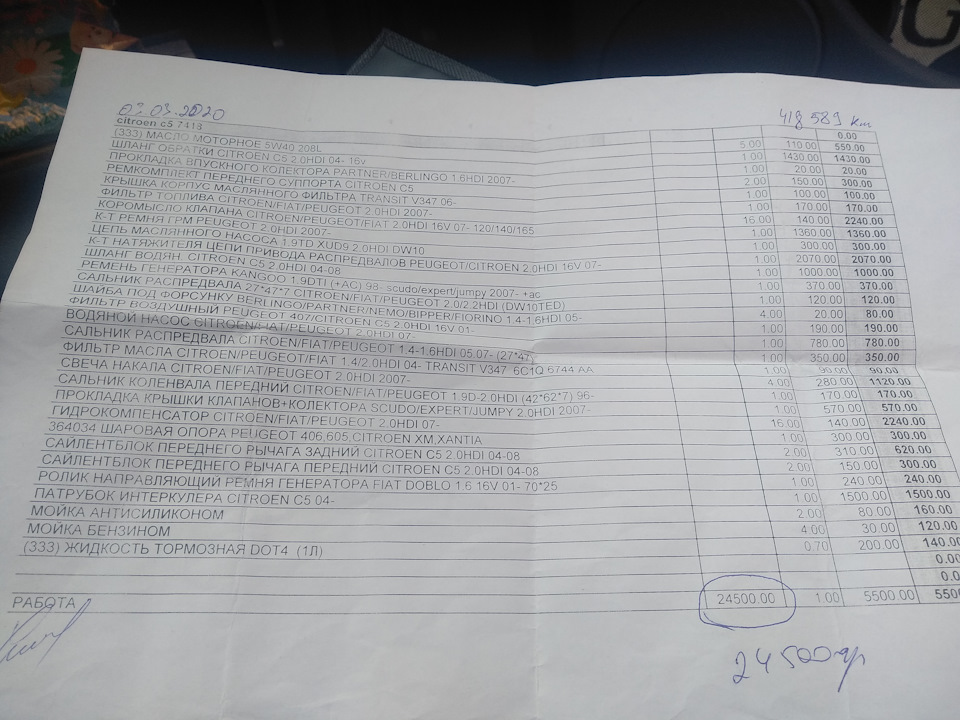 03.03.2020 418 589 km
citroen c5 7413 0.00
(333) МАСЛО МОТОРНОЕ 5W40 208L 5.00 110.00 550.00
ШЛАНГ ОБРАТКИ CITROEN C5 2.0HDI 04- 16v 1.00 1430.00 1430.00
ПРОКЛАДКА ВПУСКНОГО КОЛЕКТОРА PARTNER/BERLINGO 1.6HDI 2007- 1.00 20.00 20.00
РЕМКОМПЛЕКТ ПЕРЕДНЕГО СУППОРТА CITROEN C5 2.00 150.00 300.00
КРЫШКА КОРПУС МАСЛЯННОГО ФИЛЬТРА TRANSIT V347 06- 1.00 100.00 100.00
ФИЛЬТР ТОПЛИВА CITROEN/FIAT/PEUGEOT 2.0HDI 2007- 1.00 170.00 170.00
КОРОМЫСЛО КЛАПАНА CITROEN/PEUGEOT/FIAT 2.0HDI 16V 07- 120/140/165 16.00 140.00 2240.00
К-Т РЕМНЯ ГРМ PEUGEOT 2.0HDI 2007- 1.00 1360.00 1360.00
ЦЕПЬ МАСЛЯННОГО НАСОСА 1.9TD XUD9 2.0HDI DW10 1.00 300.00 300.00
К-Т НАТЯЖИТЕЛЯ ЦЕПИ ПРИВОДА РАСПРЕДВАЛОВ PEUGEOT/CITROEN 2.0HDI 16V 07- 1.00 2070.00 2070.00
ШЛАНГ ВОДЯН. CITROEN C5 2.0HDI 04-08 1.00 1000.00 1000.00
РЕМЕНЬ ГЕНЕРАТОРА KANGOO 1.9DTI (+AC) 98- scudo/expert/jumpy 2007- +ac 1.00 370.00 370.00
САЛЬНИК РАСПРЕДВАЛА 27*47*7 CITROEN/FIAT/PEUGEOT 2.0/2.2HDI (DW10TED) 1.00 120.00 120.00
ШАЙБА ПОД ФОРСУНКУ BERLINGO/PARTNER/NEMO/BIPPER/FIORINO 1.4-1.6HDI 05- 4.00 20.00 80.00
ФИЛЬТР ВОЗДУШНЫЙ PEUGEOT 407/CITROEN C5 2.0HDI 16V 01- 1.00 190.00 190.00
ВОДЯНОЙ НАСОС CITROEN/FIAT/PEUGEOT 2.0HDI 07- 1.00 780.00 780.00
САЛЬНИК РАСПРЕДВАЛА CITROEN/FIAT/PEUGEOT 1.4-1.6HDI 05.07- (27*47* 1.00 350.00 350.00
ФИЛЬТР МАСЛА CITROEN/PEUGEOT/FIAT 1.4/2.0HDI 04- TRANSIT V347 6C1Q 6744 AA 1.00 90.00 90.00
СВЕЧА НАКАЛА CITROEN/FIAT/PEUGEOT 2.0HDI 2007- 4.00 280.00 1120.00
САЛЬНИК КОЛЕНВАЛА ПЕРЕДНИЙ CITROEN/FIAT/PEUGEOT 1.9D-2.0HDI (42*62*7) 96- 1.00 170.00 170.00
ПРОКЛАДКА КРЫШКИ КЛАПАНОВ+КОЛЕКТОРА SCUDO/EXPERT/JUMPY 2.0HDI 2007- 1.00 570.00 570.00
ГИДРОКОМПЕНСАТОР CITROEN/FIAT/PEUGEOT 2.0HDI 07- 16.00 140.00 2240.00
364034 ШАРОВАЯ ОПОРА PEUGEOT 406,605,CITROEN XM,XANTIA 1.00 300.00 300.00
САЙЛЕНТБЛОК ПЕРЕДНЕГО РЫЧАГА ЗАДНИЙ CITROEN C5 2.0HDI 04-08 2.00 310.00 620.00
САЙЛЕНТБЛОК ПЕРЕДНЕГО РЫЧАГА ПЕРЕДНИЙ CITROEN C5 2.0HDI 04-08 2.00 150.00 300.00
РОЛИК НАПРАВЛЯЮЩИЙ РЕМНЯ ГЕНЕРАТОРА FIAT DOBLO 1.6 16V 01- 70*25 1.00 240.00 240.00
ПАТРУБОК ИНТЕРКУЛЕРА CITROEN C5 04- 1.00 1500.00 1500.00
МОЙКА АНТИСИЛИКОНОМ 2.00 80.00 160.00
МОЙКА БЕНЗИНОМ 4.00 30.00 120.00
(333) ЖИДКОСТЬ ТОРМОЗНАЯ DOT4 (1Л) 0.70 200.00 140.00
0.00
0.0
РАБОТА 24500.00 1.00 5500.00 5500
24 500гр